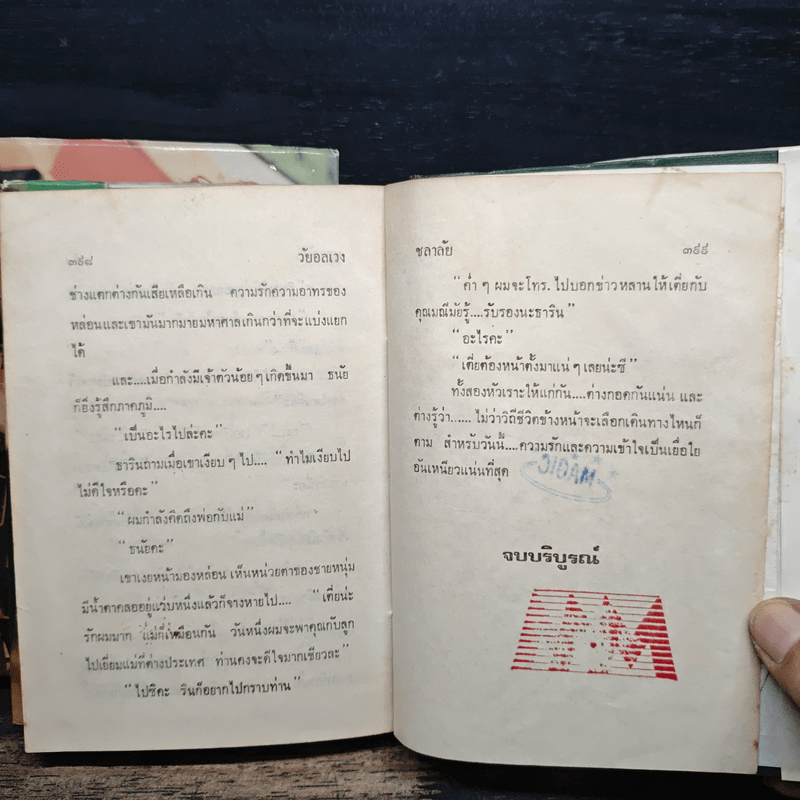 ๓๙๘ วัยอลเวง
ช่างแตกต่างกันเสียเหลือเกิน ความรักความอาทรของ
หล่อนและเขามันมากมายมหาศาลเกินกว่าที่จะแบ่งแยก
ได้
และ....เมื่อกำลังมีเจ้าตัวน้อยๆเกิดขึ้นมา ธนัย
ก็ยิ่งรู้สึกภาคภูมิ....
“เป็นอะไรไปล่ะคะ”
ธารินถามเมื่อเขาเงียบๆไป.... “ทำไมเงียบไป
ไม่ดีใจหรือคะ”
“ผมกำลังคิดถึงพ่อกับแม่”
“ธนัยคะ”
เขาเงยหน้ามองหล่อน เห็นหน่วยตาของชายหนุ่ม
มีน้ำตาคลออยู่แว่บหนึ่งแล้วก็จางหายไป.... “เตี่ยน่ะ
รักผมมาก แม่ก็เหมือนกัน วันหนึ่งผมจะพาคุณกับลูก
ไปเยี่ยมแม่ที่ต่างประเทศ ท่านคงจะดีใจมากเชียวละ”
“ไปซิคะ รินก็อยากไปกราบท่าน”
ชลาลัย ๓๙๙
“ค่ำๆ ผมจะโทร. ไปบอกข่าวหลานให้เตี่ยกับ
คุณมณีมัยรู้....รับรองนะธาริน”
“อะไรคะ”
“เตี่ยต้องหน้าตั้งมาแน่ๆเลยน่ะซี”
ทั้งสองหัวเราะให้แก่กัน....ต่างกอดกันแน่น และ
ต่างรู้ว่า...... ไม่ว่าวิถีชีวิตข้างหน้าจะเลือกเดินทางไหนก็
ตาม สำหรับวันนี้....ความรักและความเข้าใจเป็นเยื่อใย
อันเหนียวแน่นที่สุด
MAGIC
จบบริบูรณ์